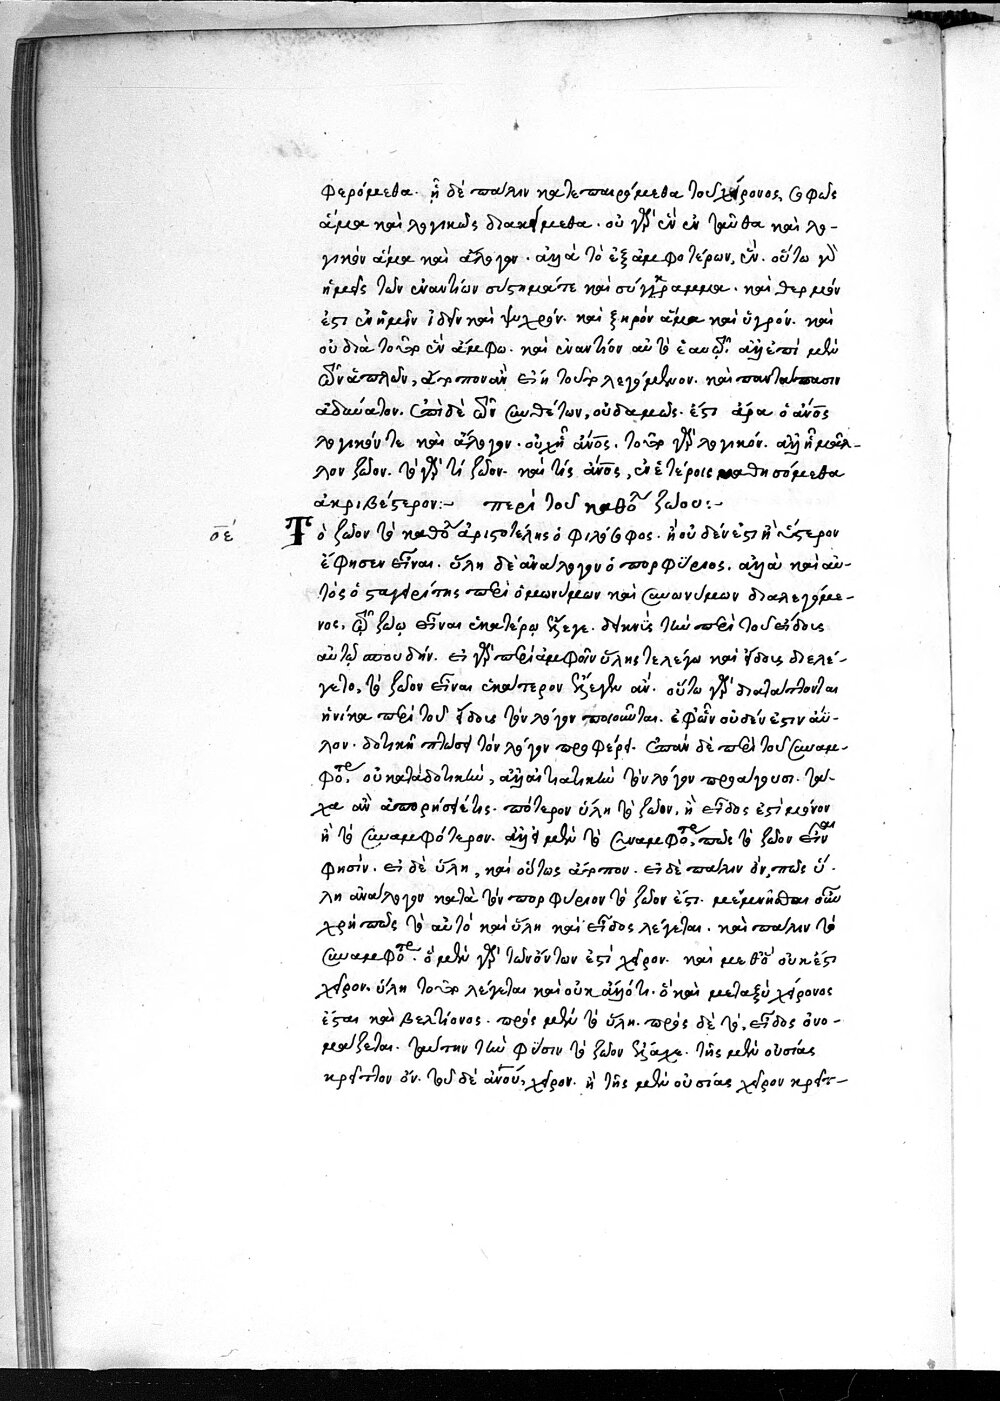 φερόμεθα. ἢ δὲ πάλιν κατεπαιρόμεθα τοῦ χείρονος, σοφῶς
ἅμα καὶ λογικῶς διακείμεθα. οὐ γὰρ ἓν ἐνταῦθα καὶ λο-
γικὸν ἅμα καὶ ἄλογον. ἀλλὰ τὸ ἐξ ἀμφοτέρων, ἕν. οὕτω
ἡμεῖς τῶν ἐναντίων συστήματε καὶ σύγγραμμα. καὶ θερμὸν
ἐστὶ ἐν ἡμῖν ἰδεῖν καὶ ψυχρόν. καὶ ξηρὸν ἅμα καὶ ὑγρόν. καὶ
οὐ διὰ τοῦτο ἓν ἄμφω. καὶ ἐναντίον αὐτὸ ἑαυτῷ. ἀλλ' ἐπὶ μὲν
τῶν ἁπλῶν, ἄτοπον ἂν εἴη τοῦτο λεγόμενον. καὶ παντάπασιν
ἀδύνατον. ἐπὶ δὲ τῶν συνθέτων, οὐδαμῶς. ἔστι ἄρα ὁ ἄνος
λογικόν τε καὶ ἄλογον. οὐχ ᾗ ἄνος. τοῦτο γὰρ λογικόν. ἀλλ' ᾗ μᾶλ-
λον ζῶον. τὸ γὰρ τί ζῶον. καὶ τίς ἄνος, ἐν ἑτέροις μαθησόμεθα
ἀκριβέστερον:~ περὶ τοῦ καθόλου ζώου:~
σέ Τὸ ζῶον τὸ καθόλου ἀριστοτέλης ὁ φιλόσοφος. ἢ οὐδέν ἐστι ἢ ὕστερον
ἔφησεν εἶναι. ὕλῃ δὲ ἀνάλογον ὁ πορφύριος. ἀλλὰ καὶ αὐ-
τὸς ὁ σταγειρίτης περὶ ὁμωνύμων καὶ συνωνύμων διαλεγόμε-
νος, τῷ ζώῳ εἶναι ἑκατέρῳ ἔλεγε. δεικνὺς τὴν περὶ τοῦ εἴδους
αὐτῷ σπουδήν. εἰ γὰρ περὶ ἀμφοῖν ὕλης τε λέγω καὶ εἴδους διελέ-
γετο, τὸ ζῶον εἶναι ἑκάτερον ἔλεγεν ἄν. οὕτω γὰρ διατάττονται
ἡνίκα περὶ τοῦ εἴδους τὸν λόγον ποιοῦνται. ἐφ' ὧν οὐδέν ἐστιν ἄϋ-
λον. δοτικῇ πτώσει τὸν λόγον προφέρει. ἐπὰν δὲ περὶ τοῦ συναμ-
φοτέρου, οὐ κατὰ δοτικὴν, ἀλλ' αἰτιατικὴν τὸν λόγον προάγουσι. τά-
χα ἂν ἀπορήσειέ τις. πότερον ὕλη τὸ ζῶον, ἢ εἶδος ἐστὶ μόνον
ἢ τὸ συναμφότερον. ἀλλ' εἰ μὲν τὸ συναμφότερον, πῶς τὸ ζῶον εἶναι
φησίν. εἰ δὲ ὕλη, καὶ οὕτως ἄτοπον. εἰ δὲ πάλιν ὂν, πῶς ὕ-
λῃ ἀνάλογον κατὰ τὸν πορφύριον τὸ ζῶον ἐστί. μεμνῆσθαι οὖν
χρὴ πῶς τὸ αὐτὸ καὶ ὕλη καὶ εἶδος λέγεται. καὶ πάλιν τὸ
συναμφότερον. ὃ μὲν γὰρ τῶν ὄντων ἐστὶ χεῖρον. καὶ μεθ' ὃ οὐκ ἔστι
χεῖρον. ὕλη τοῦτο λέγεται καὶ οὐκ ἄλλό τι. ὃ καὶ μεταξὺ χείρονος
ἐστὶ καὶ βελτίονος. πρὸς μὲν τὸ ὕλη. πρὸς δὲ τὸ, εἶδος ὀνο-
μάζεται. ταύτην τὴν φύσιν τὸ ζῶον ἔλαχε. τῆς μὲν οὐσίας
κρεῖττον ὄν. τοῦ δὲ ἀνου, χεῖρον. ἢ τῆς μὲν οὐσίας χεῖρον κρειτ-